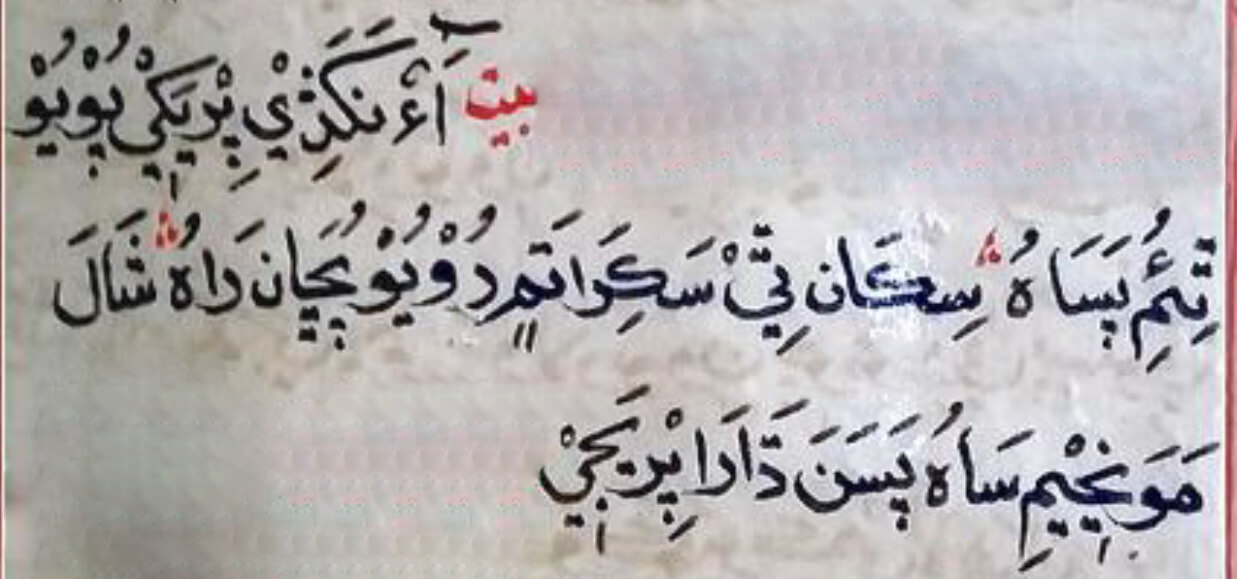 بيت آءْ نَكَڙِيْ پِرْيَكِيْ پُوْيُوْ
تِّئُمِ پَسَاهُ سِكَان تِيّْ سَكِرَاتَمٍ دُوْ وُيُوْ چَپَان دَراهُ شَالَ
مَوَنِجِيْمِ سَاهُ پَسَنَ دَّارَا پِرْيَجِيْ